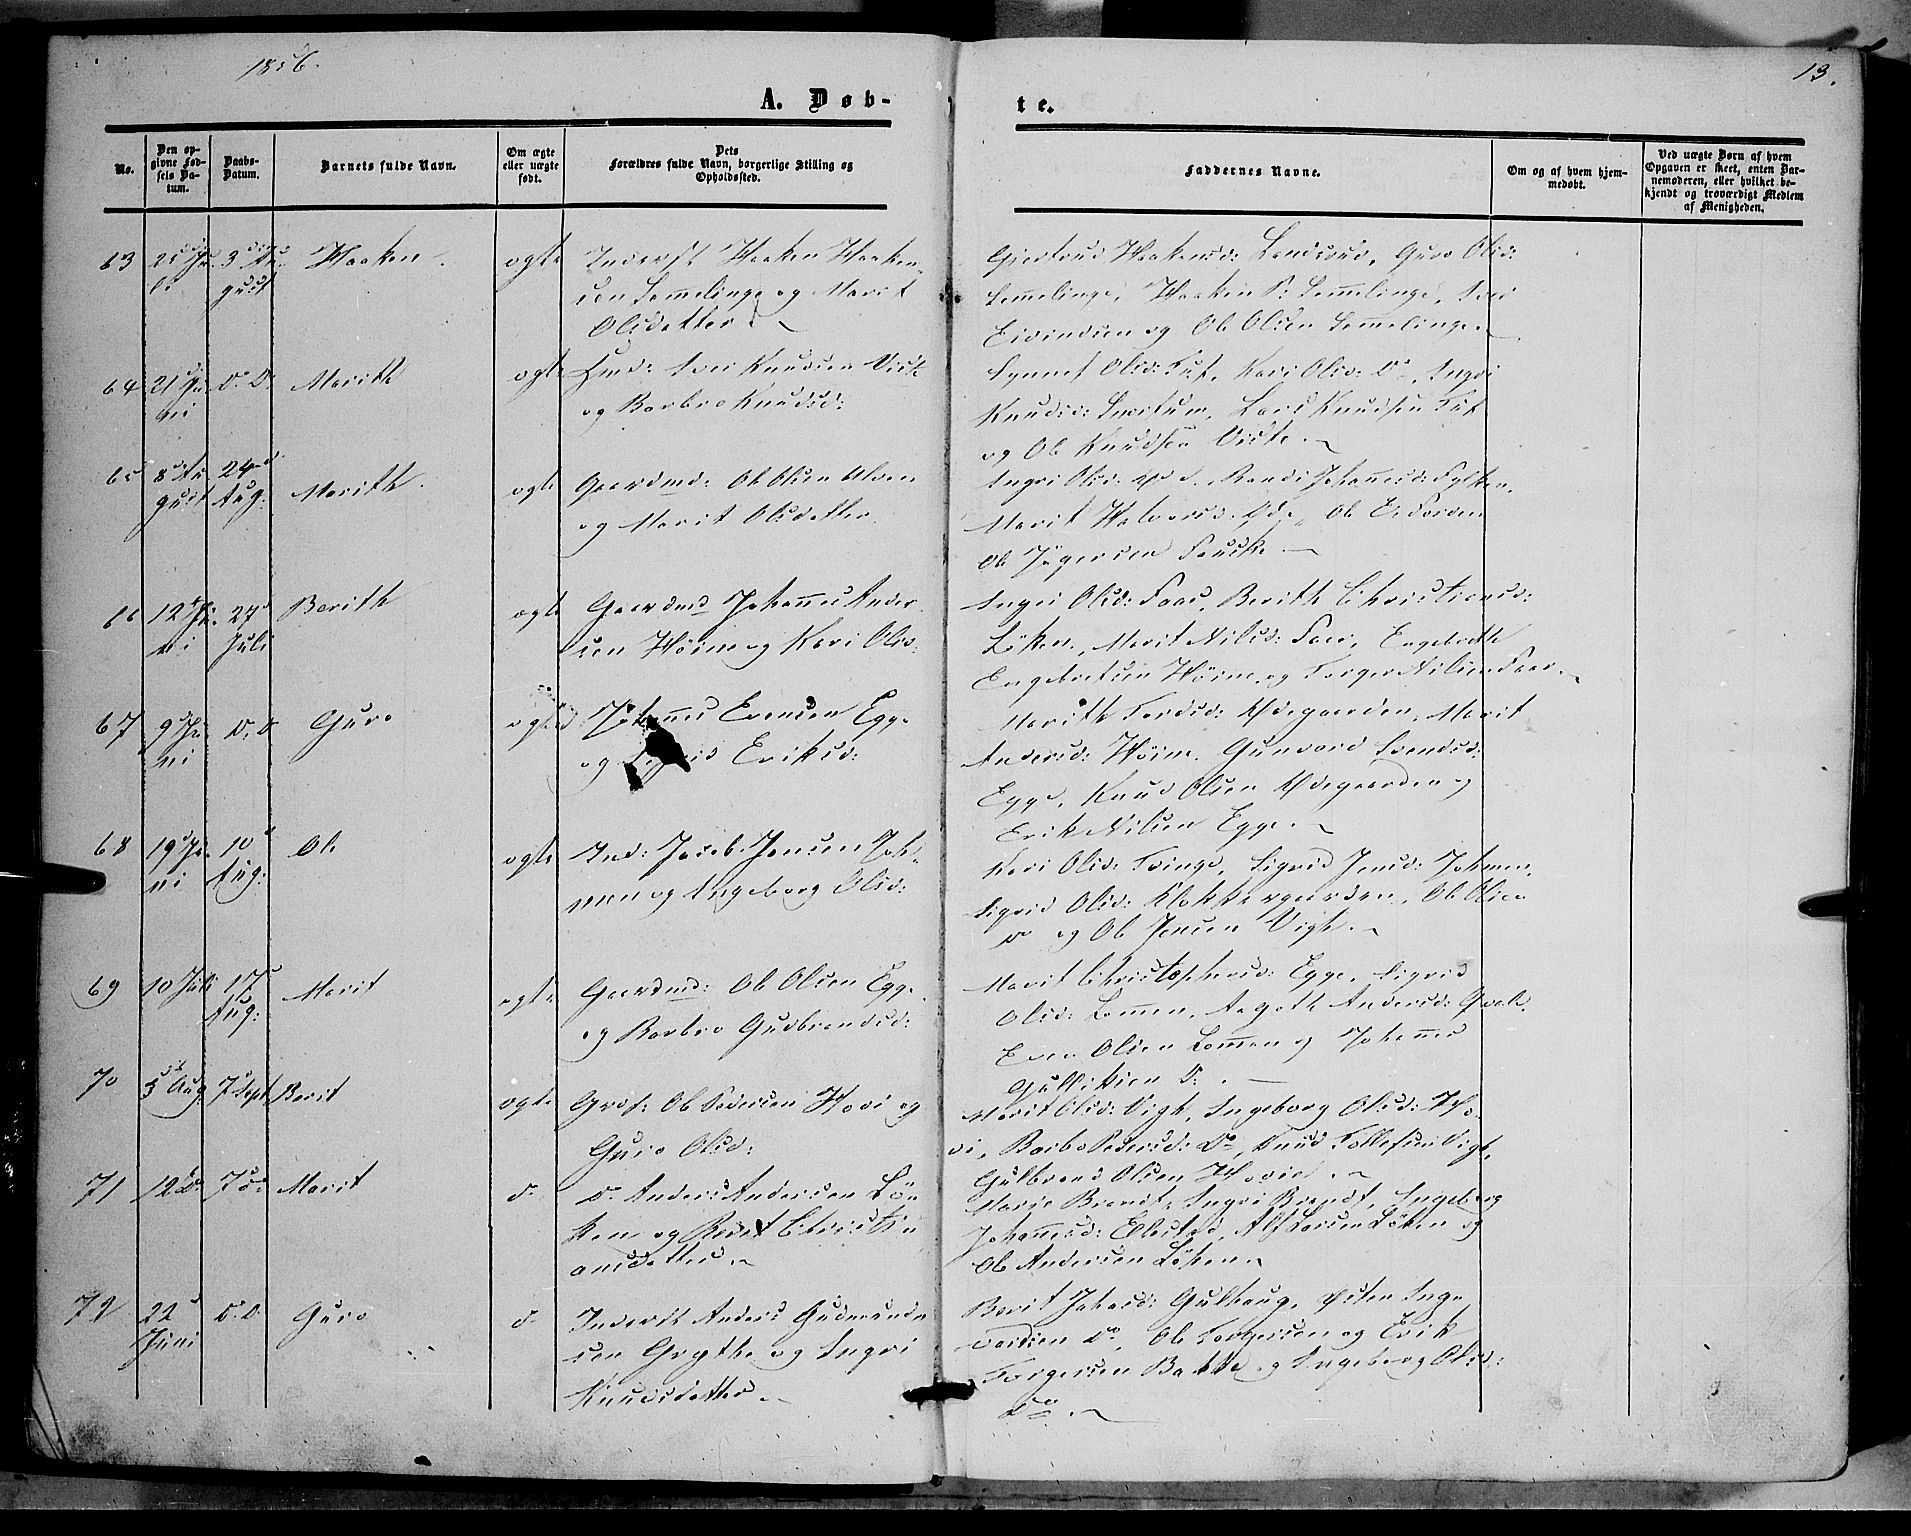 1856.
13.
A. Døb-
te.
No.
Den op-
givne Fød-
sels Da-
tum.
Daabs-
Datum.
Barnets fulde Navn.
Om ægte
eller uægte
født.
Dets
Forældres fulde Navn, borgerlige Stilling og
Opholdssted.
Faddernes Navne.
Om og af hvem hjem-
medøbt.
Ved uægte Børn af hvem
Opgaven er skeet, enten Bar-
nemoderen, eller hvilket be-
kjendt og troværdigt Medlem
af Menigheden.
63
3 Au-
gust
Haaken
ægte
Inderst Haaken Haaken-
sen Semmelinge og Marit
Olsdatter
Gjertrud Haakensd: Landsrud, Guro Olsd:
Semmelinge, Haaken P: Semmelinge, Iver
Eivindsen og Ole Olsen Semmelinge
64
21 Ju-
ni
D. D.
Marith
ægte
Hmd: Iver Knudsen Viste
og Barbro Knudsd:
Synnef Olsd: Tuf, Kari Olsd: Do, Ingri
Knudsd: Lars Knudsen Tuf
og Ole Knudsen Viste
65
8 Au-
gust
24
Aug:
Marith
ægte
Gaardmd: Ole Olsen Alven
og Marit Olsdatter
Ingri Olsd: Randi Johannesd:
Marit Halvorsd:
Ole
66
12 Ju-
ni
27
Juli
Berith
ægte
Gaardmd Johannes Ander-
sen Hörme og Kari Olsd:
Ingri Olsd: Faas, Berith Christiansd:
Löken, Marit Nilsd: Engebreth
Engebretsen Hörme og Torger Nilsen
67
9 Ju-
ni
D. D
Guro
ægte
Johannes Evensen Egge
og Eriksd:
Marith Ødegaarden, Marit
Andersd: Hörme, Gunvord Svendsd:
Egge, Knud Olsen Ødegaarden og
Erik Nilsen Egge
68
19 Ju-
ni
10
Aug:
Ole
ægte
Ind: Jacob Jensen Joh-
men og Ingeborg Olsd:
Kari Olsd: Sigrid Jensd: Johmen,
Sigrid Olsd: Klokkergaarden, Ole Olsen
Do og Ole Jensen Vigh
69
10 Juli
17
Aug:
Marit
ægte
Gaardmd: Ole Olsen Egge
og Barbro Gudbrandsd:
Marit Christophersd: Egge, Sigrid
Olsd: Lomen, Aagoth Andersd: Qvale,
Even Olsen Lomen og Johannes
Gulliksen D:
70
5 Aug:
7 Sept
Berit
ægte
Ole Pedersen Hovi og
Guro Olsd:
Marit Olsd: Vigh, Ingeborg Olsd: Ho-
vi, Barbro Pedersd: Do, Knud Tollefsen Vigh,
Gulbrand Olsen Hovi
71
12 D:
7 D:
Marit
D.
D. Anders Andersen Lö-
ken og Berit Christi-
ansdatter
Marie Brandt, Ingri Brandt, Ingeborg
Johannesd: Alf Larsen Löken og
Ole Andersen Löken
72
22
Juni
D. D.
Guro
D.
Inderst Anders Gudmunds-
sen Grythe og Ingri
Knudsdatter
Berit Johansd: Gulhaug, Østen Inge-
vardsen Do, Ole Torgersen og Erik
Torgersen Bakke og Ingeborg Olsd:
Do